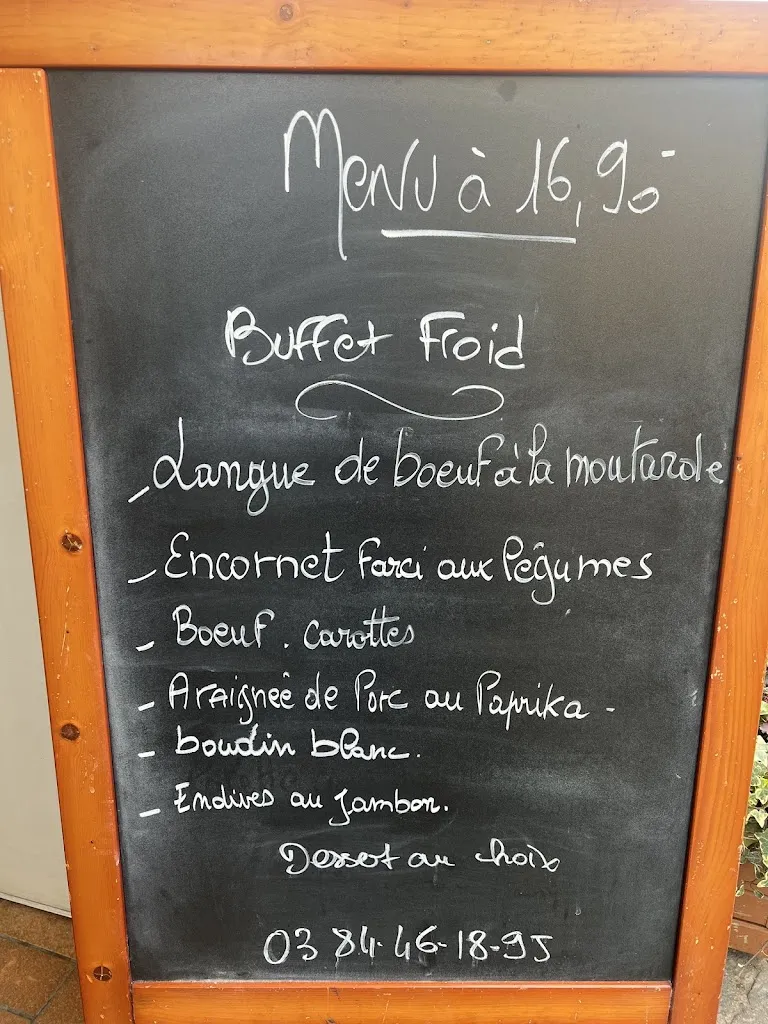 Menu à 16,90
Buffet Froid
- Langue de boeuf à la moutarde
- Encornet farci aux légumes
- Boeuf. carottes
- Araignée de Porc au Paprika -
- boudin blanc.
- Endives au Jambon.
Dessert au choix
03 84.46-18-95